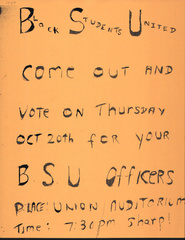 Black Students United
COME OUT AND
VOTE ON THURSDAY
OCT 20th for YOUR
B.S.U Officers
PLACE: UNION AUDITORIUM
Time: 7:30pm Sharp!